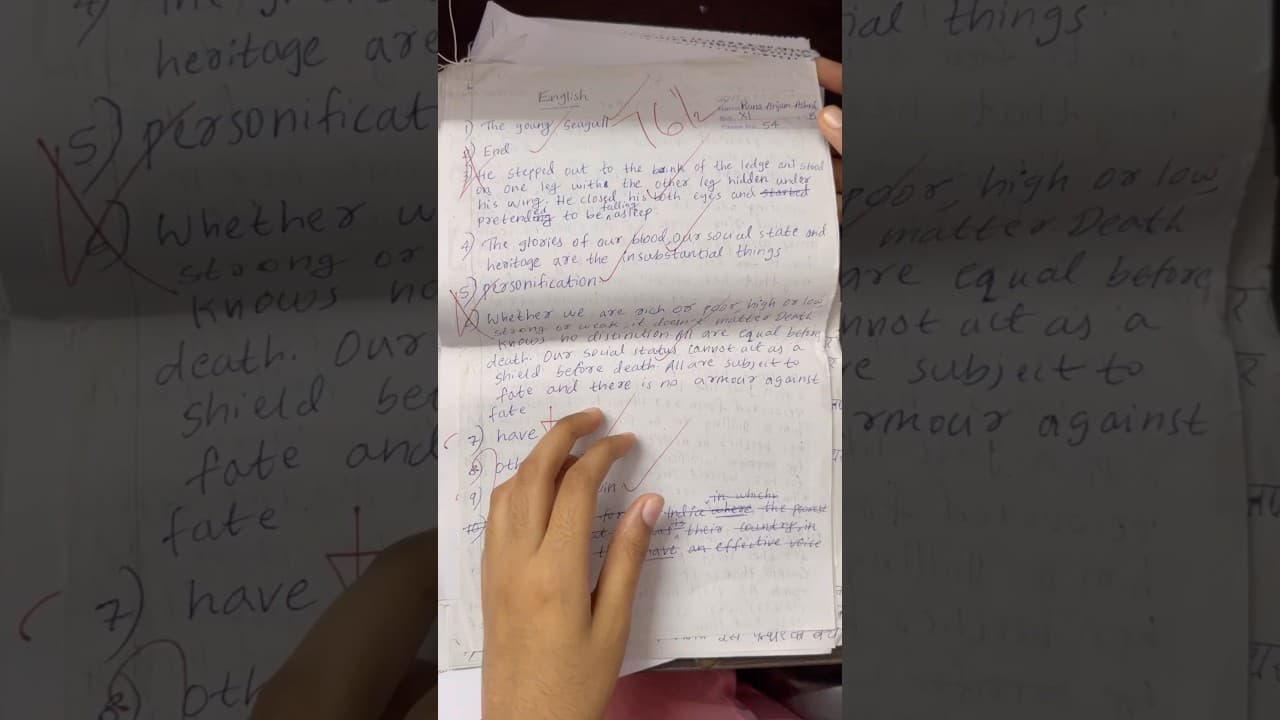 English
16½
1) The young seagull
XI B
54
2) End
3) He stepped out to the brink of the ledge and stood
on one leg with the other leg hidden under
his wing. He closed his both eyes and started
falling
pretended to be asleep.
4) The glories of our blood, our social state and
heritage are the insubstantial things
5) personification
6) Whether we are rich or poor high or low
strong or weak, it doesn't matter. Death
knows no distinction. All are equal before
death. Our social status cannot act as a
shield before death. All are subject to
fate and there is no armour against
fate
7) have
8) oth
9)
in which
10) India where the poorest
their country, in
have an effective voice